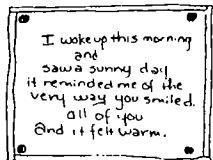 I woke up this morning
and
saw a sunny day
it reminded me of the
very way you smiled.
all of you
and it felt warm.